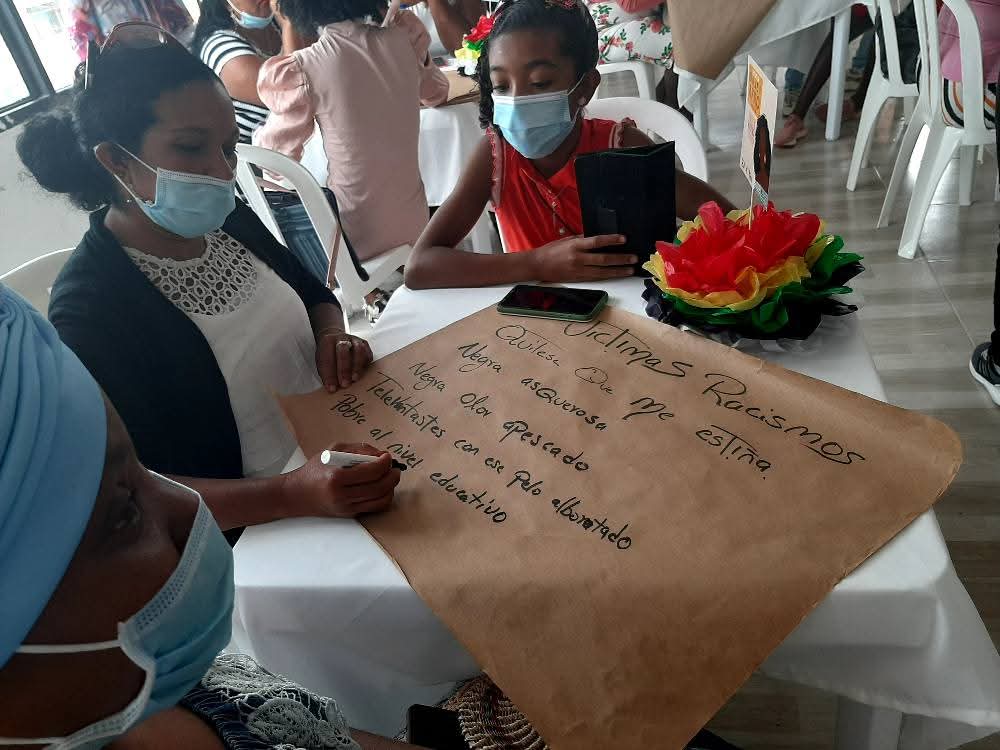 Victimas Racismos
Quitese Que me estiña.
Negra asquerosa
Negra Olor apescado
Televantastes con ese Pelo alborotado
Pobre al nivel educativo